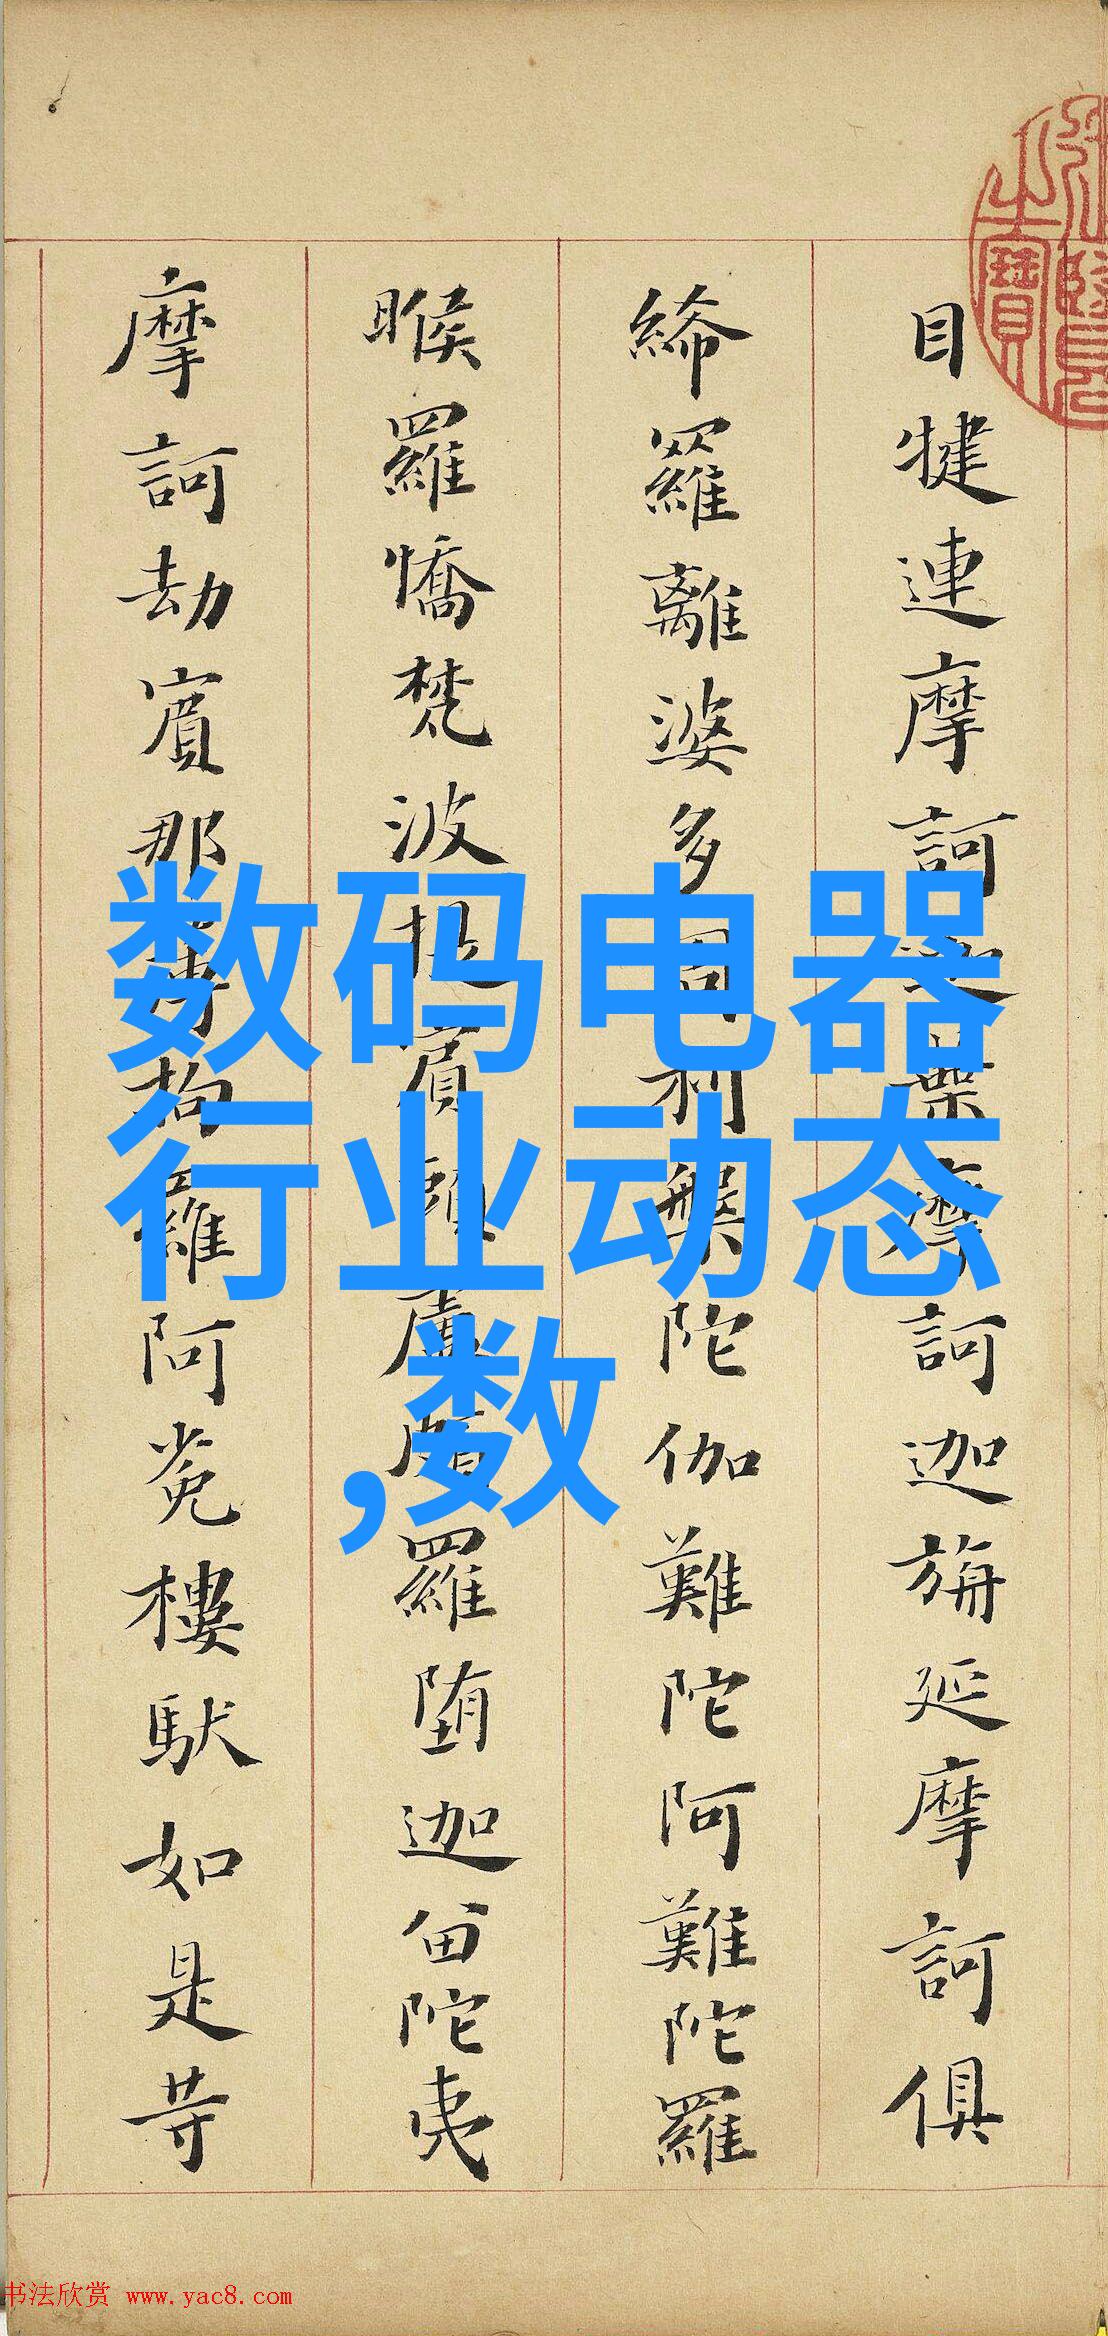 目犍連摩訶迦葉摩訶迦旃延摩訶俱
絺羅離婆多周利槃陀伽難陀阿難陀羅
睺羅憍梵波提賓頭盧頗羅墮迦留陀夷
摩訶劫賓那薄拘羅阿㝹樓馱如是等
数码电器
行业动态
,数
书法欣赏 www.yac8.com